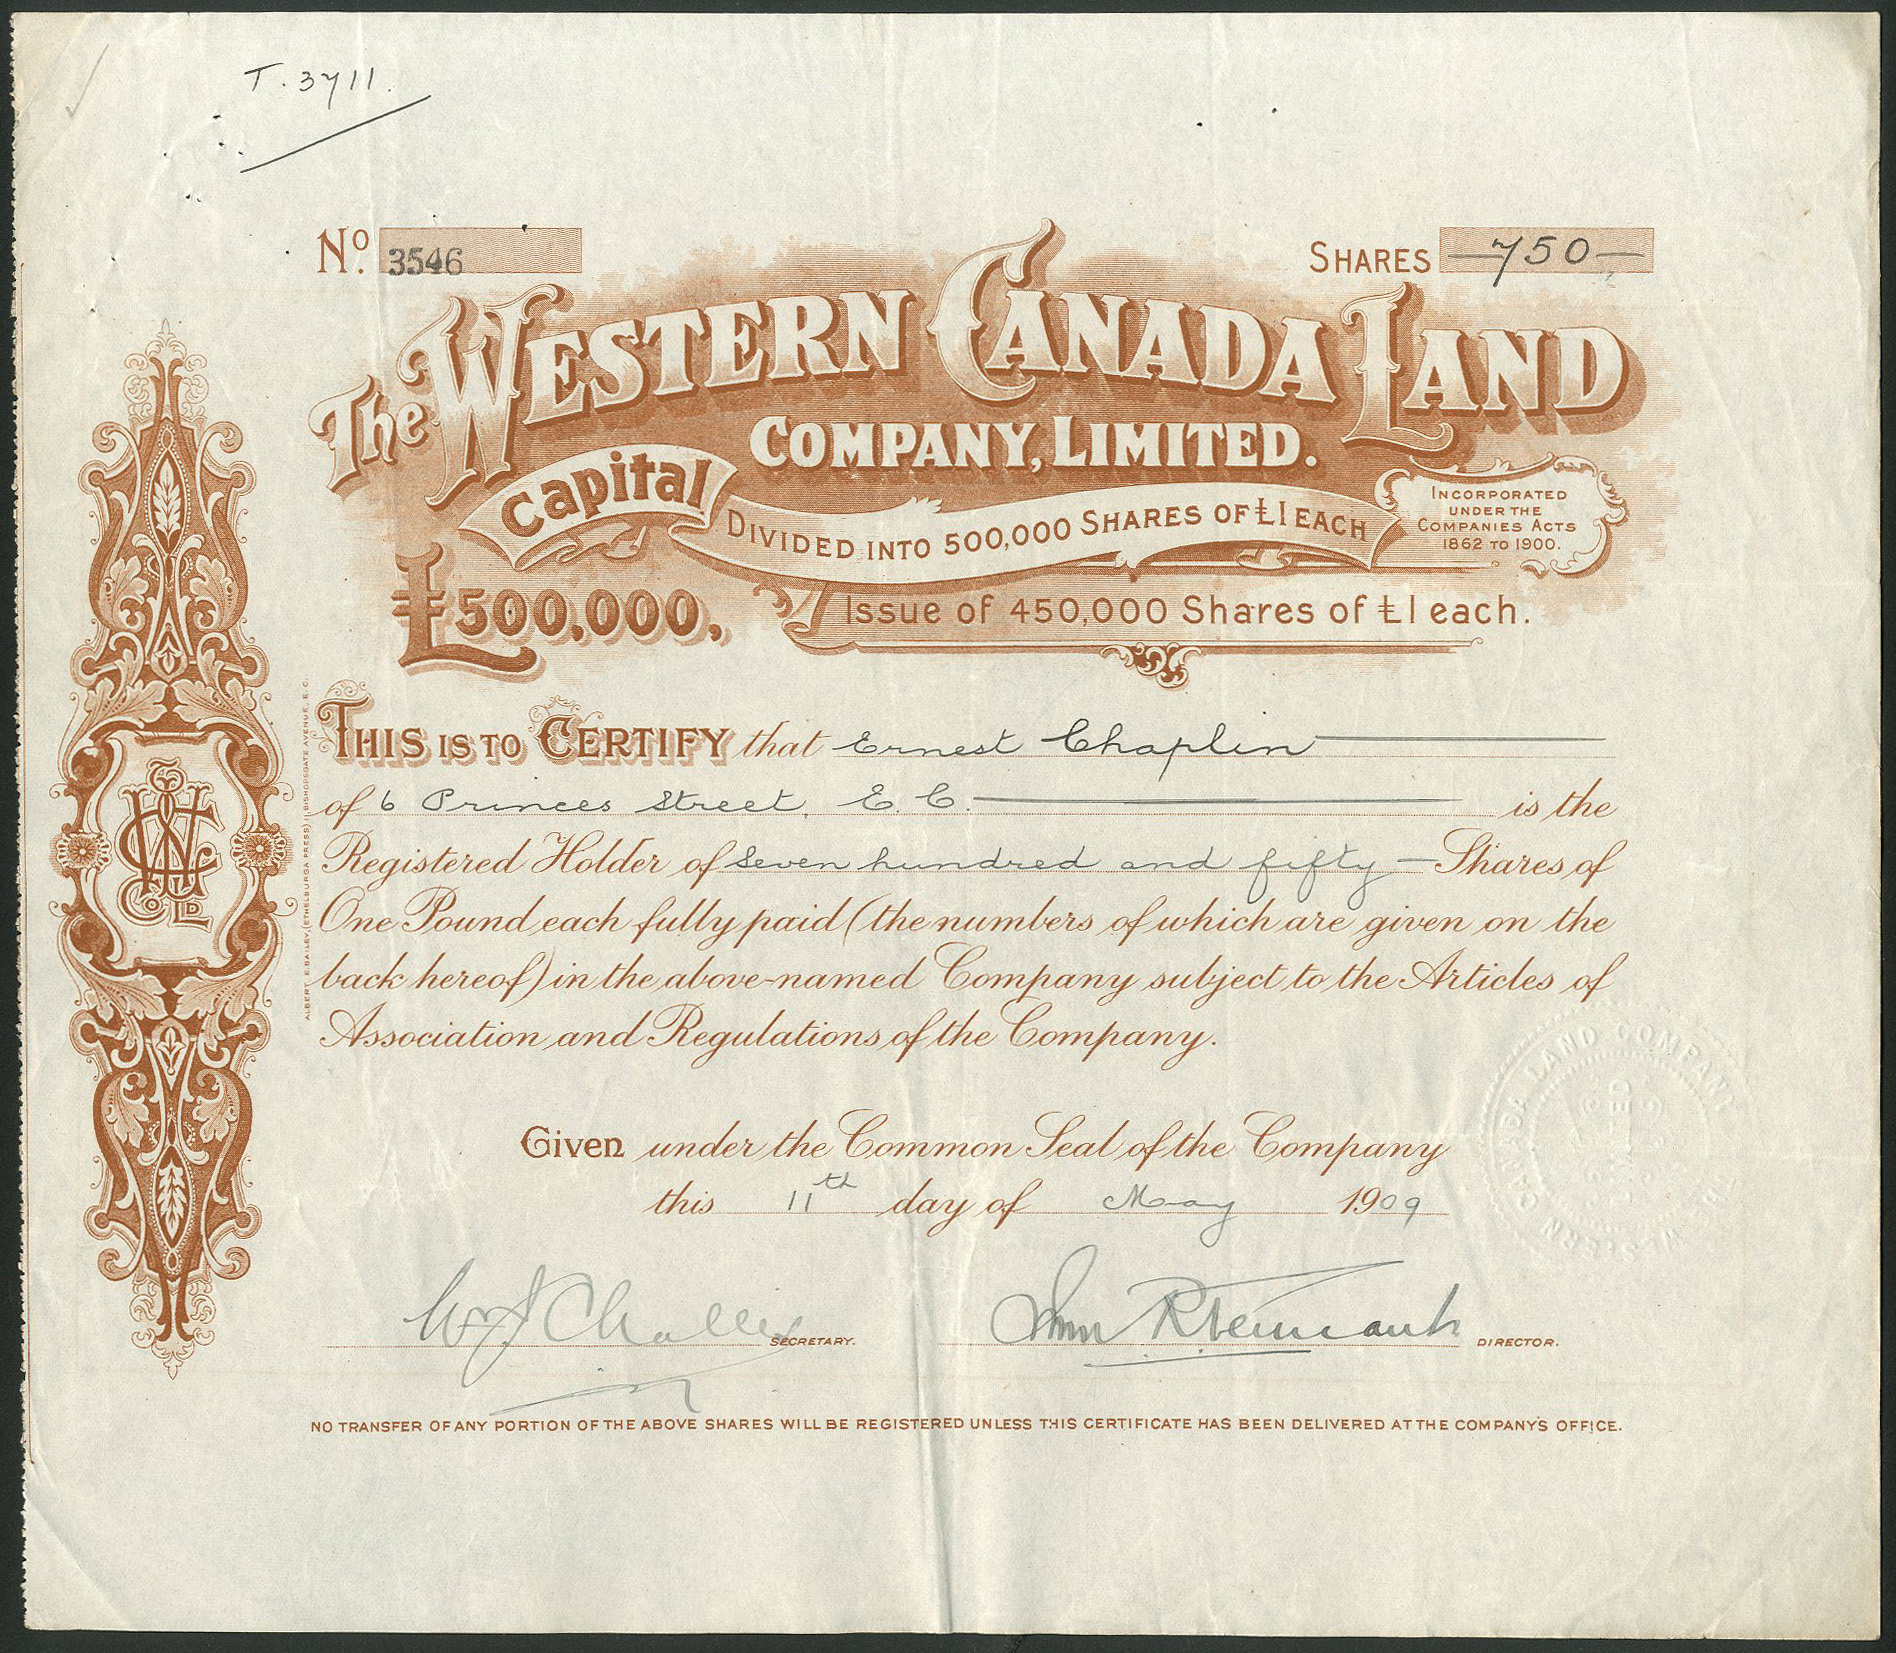 T. 3711.
No. 3546
SHARES 750
The WESTERN CANADA LAND
COMPANY, LIMITED.
Capital
DIVIDED INTO 500,000 SHARES OF £1 EACH
INCORPORATED
UNDER THE
COMPANIES ACTS
1862 TO 1900.
£500,000,
Issue of 450,000 Shares of £1 each.
THIS IS TO CERTIFY that Ernest Chaplin
of 6 Princes Street, E. C. is the
Registered Holder of Seven hundred and fifty – Shares of
One Pound each fully paid (the numbers of which are given on the
back hereof) in the above-named Company subject to the Articles of
Association and Regulations of the Company.
Given under the Common Seal of the Company
this 11th day of May 1909
W J Challis SECRETARY.
DIRECTOR.
NO TRANSFER OF ANY PORTION OF THE ABOVE SHARES WILL BE REGISTERED UNLESS THIS CERTIFICATE HAS BEEN DELIVERED AT THE COMPANY'S OFFICE.
ALBERT E. BAILEY, (ETHELBURGA PRESS) BISHOPSGATE AVENUE, E. C.
WESTERN CANADA LAND COMPANY